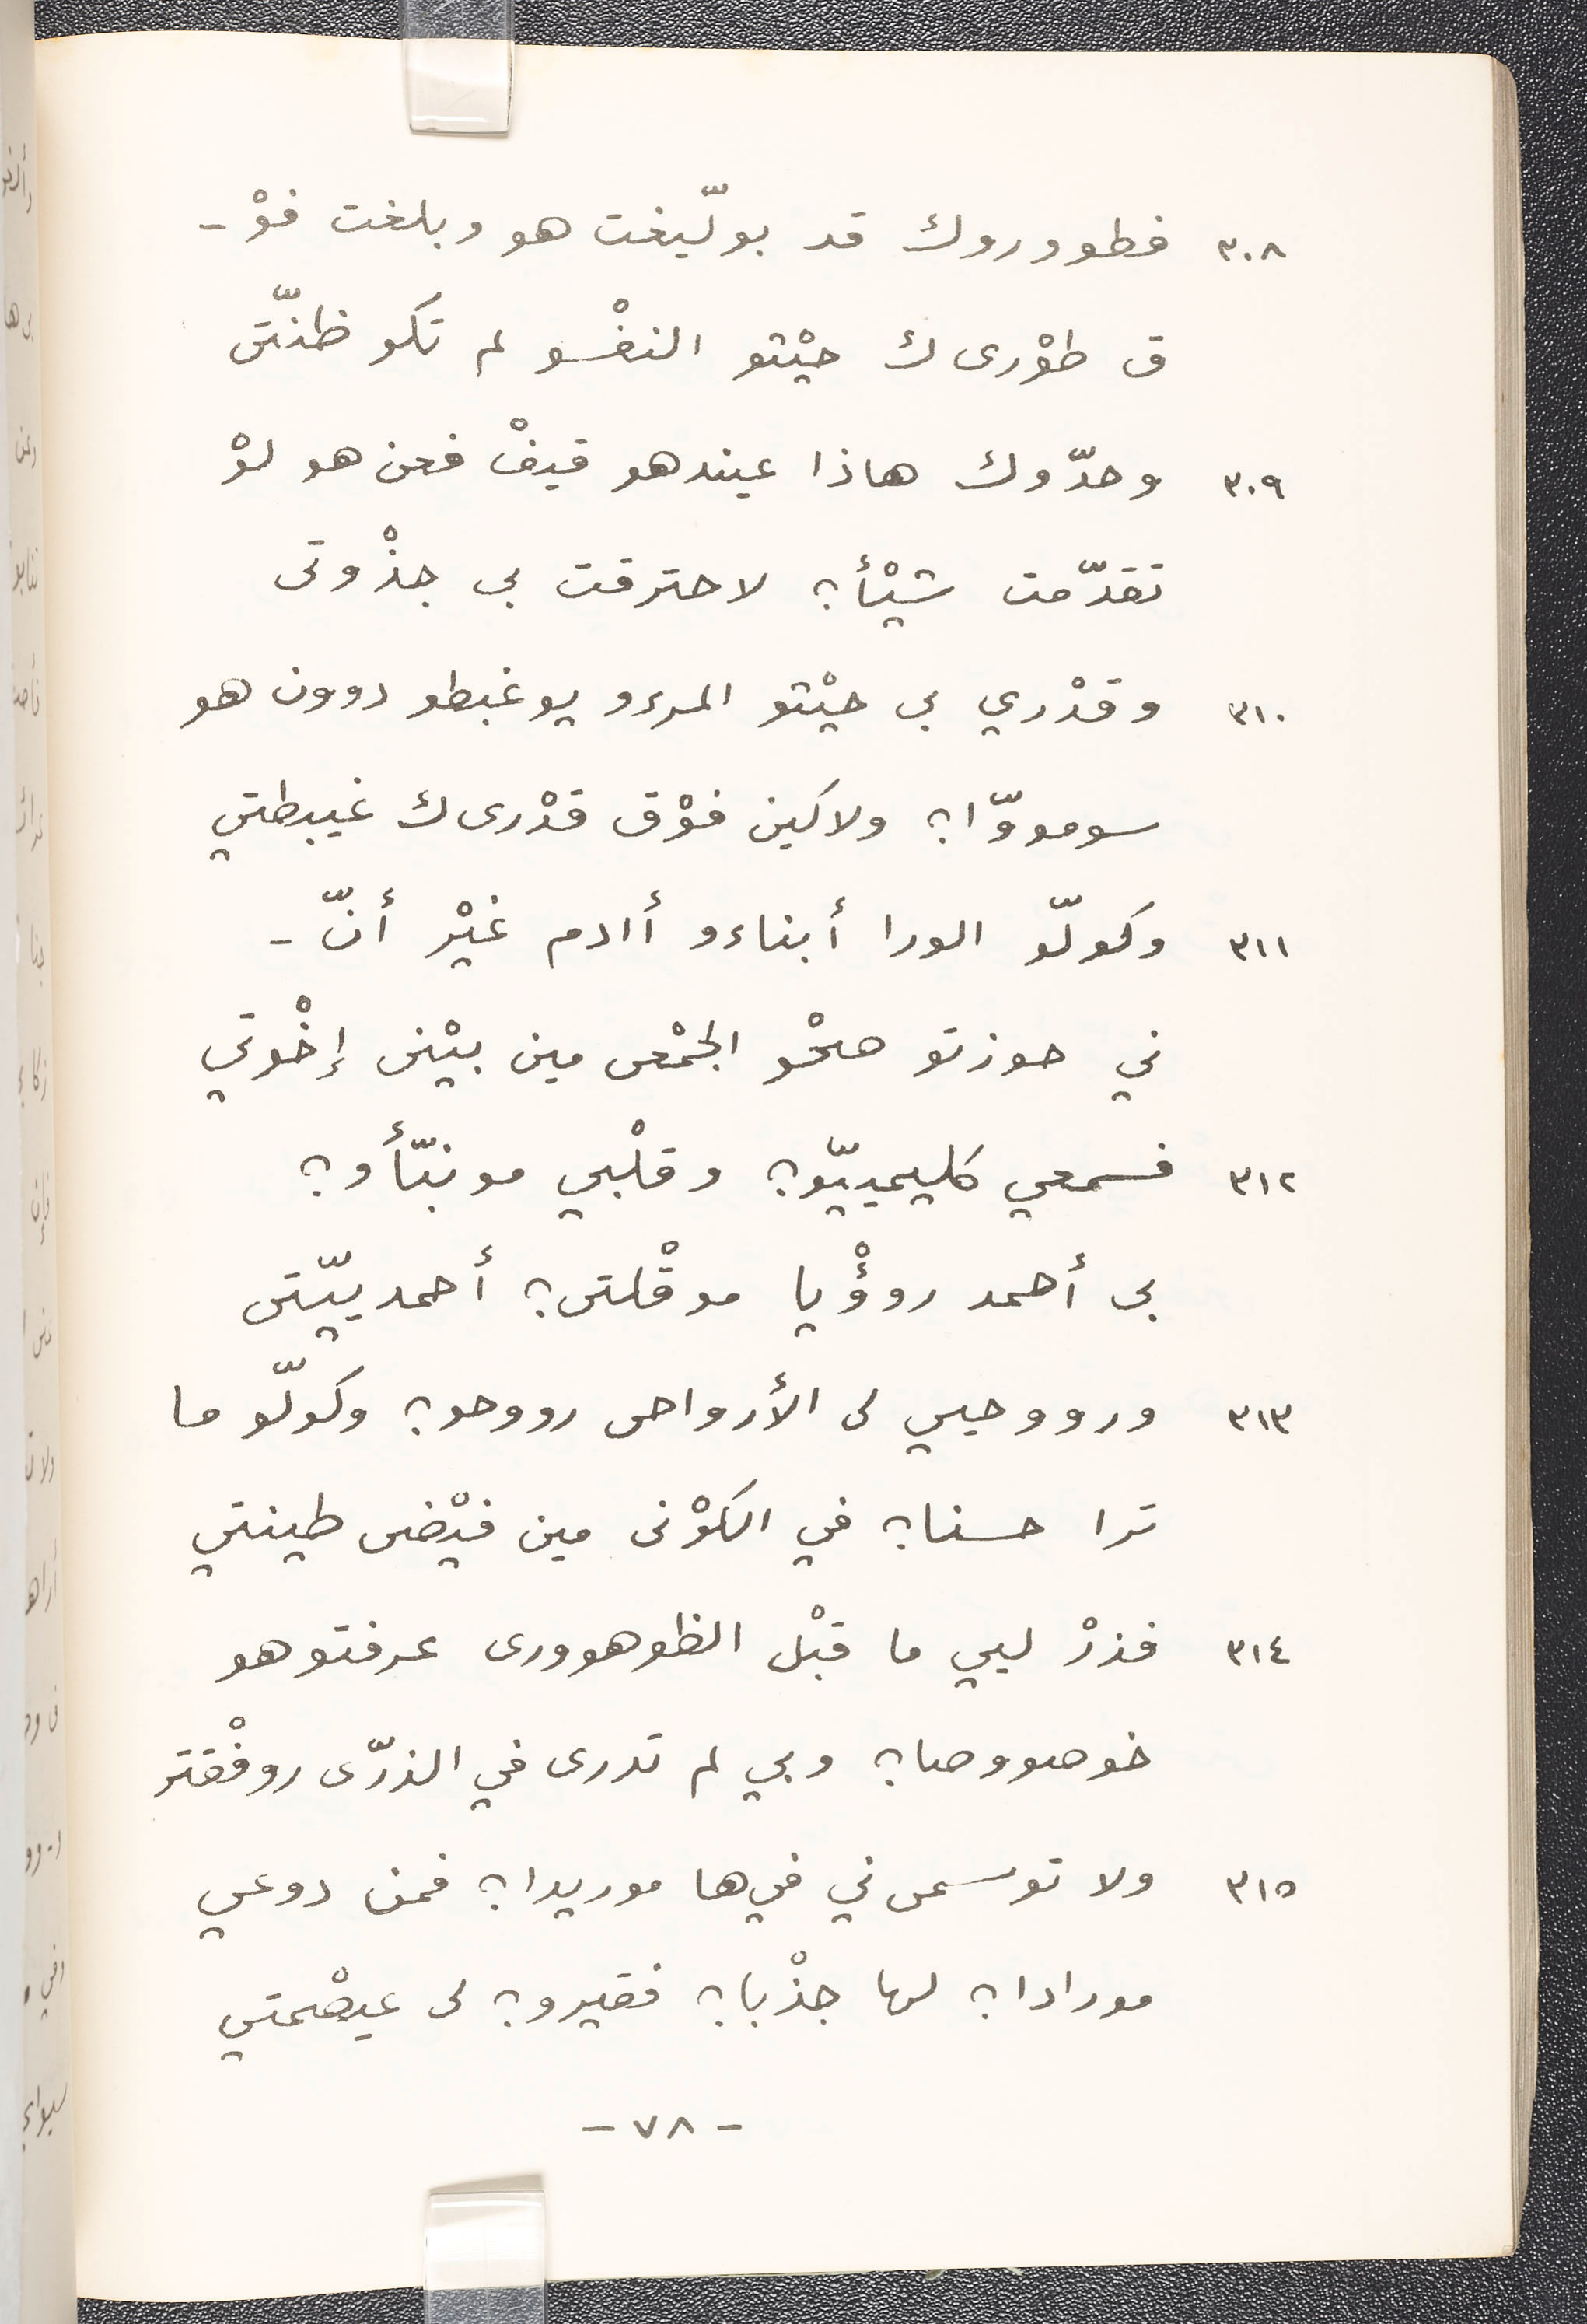 ٣٠٨ فطووروك قد بولّيغت هو وبلغت فوْ -
ق طوْرى ك حيْتو النفْسو لم تكو ظنّتى
٣٠٩ وحدّوك هاذا عيندهو قيفْ فعن هو لوْ
تقدّمت شيْأ؟ لاحترقت بى جذْوتى
٣١٠ وقدْري بى حيْتو المرءو يوغبطو دوون هو
سومووّا؟ ولاكين فوْق قدْرى ك غيبطتي
٣١١ وكولّو الورا أبناءو أادم غيْر أنّ -
ني حوزتو صحْو الجمْعى مين بيْنى إخْوتي
٣١٢ فسمعي كليمييّو؟ وقلْبي مونبّأو؟
بى أحمد روؤْيا موقْلتى؟ أحمدييّتى
٣١٣ ورووحيي لى الأرواحى رووحو؟ وكولّو ما
ترا حسنا؟ في الكوْنى مين فيْضى طينتي
٣١٤ فذرْ ليي ما قبْل الظوهوورى عرفتو هو
خوصووصا؟ وبي لم تدرى في الذرّى روفْقتر
٣١٥ ولا توسمى ني في ها موريدا؟ فمن دوعي
مورادا؟ لها جذْبا؟ فقيرو؟ لى عيصْمتي
- ٧٨ -